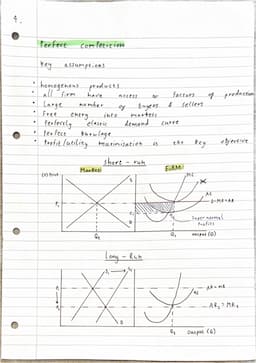 4.
Perfect competition
Key assumptions
• homogenous products
• all firm have access to factors of production
• Large number of buyers & sellers
• Free entry into markets
• Perfectly elastic demand curve
• Perfect
• Profit/utility maximisation is the key objective
Short-run
Market Firm
MC
AC
D=MR=AR
P₁
C₁
Supernormal
Profits
Q₁ Q₁ output (Q)
Long-Run
S₁ S₂
AR₂ = MR₂
D
Q₁ Output (Q)